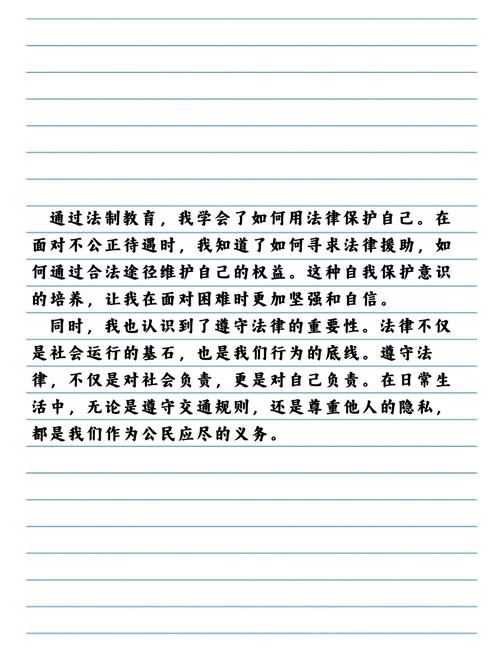 通过法制教育，我学会了如何用法律保护自己。在
面对不公正待遇时，我知道了如何寻求法律援助，如
何通过合法途径维护自己的权益。这种自我保护意识
的培养，让我在面对困难时更加坚强和自信。
同时，我也认识到了遵守法律的重要性。法律不仅
是社会运行的基石，也是我们行为的底线。遵守法
律，不仅是对社会负责，更是对自己负责。在日常生
活中，无论是遵守交通规则，还是尊重他人的隐私，
都是我们作为公民应尽的义务。